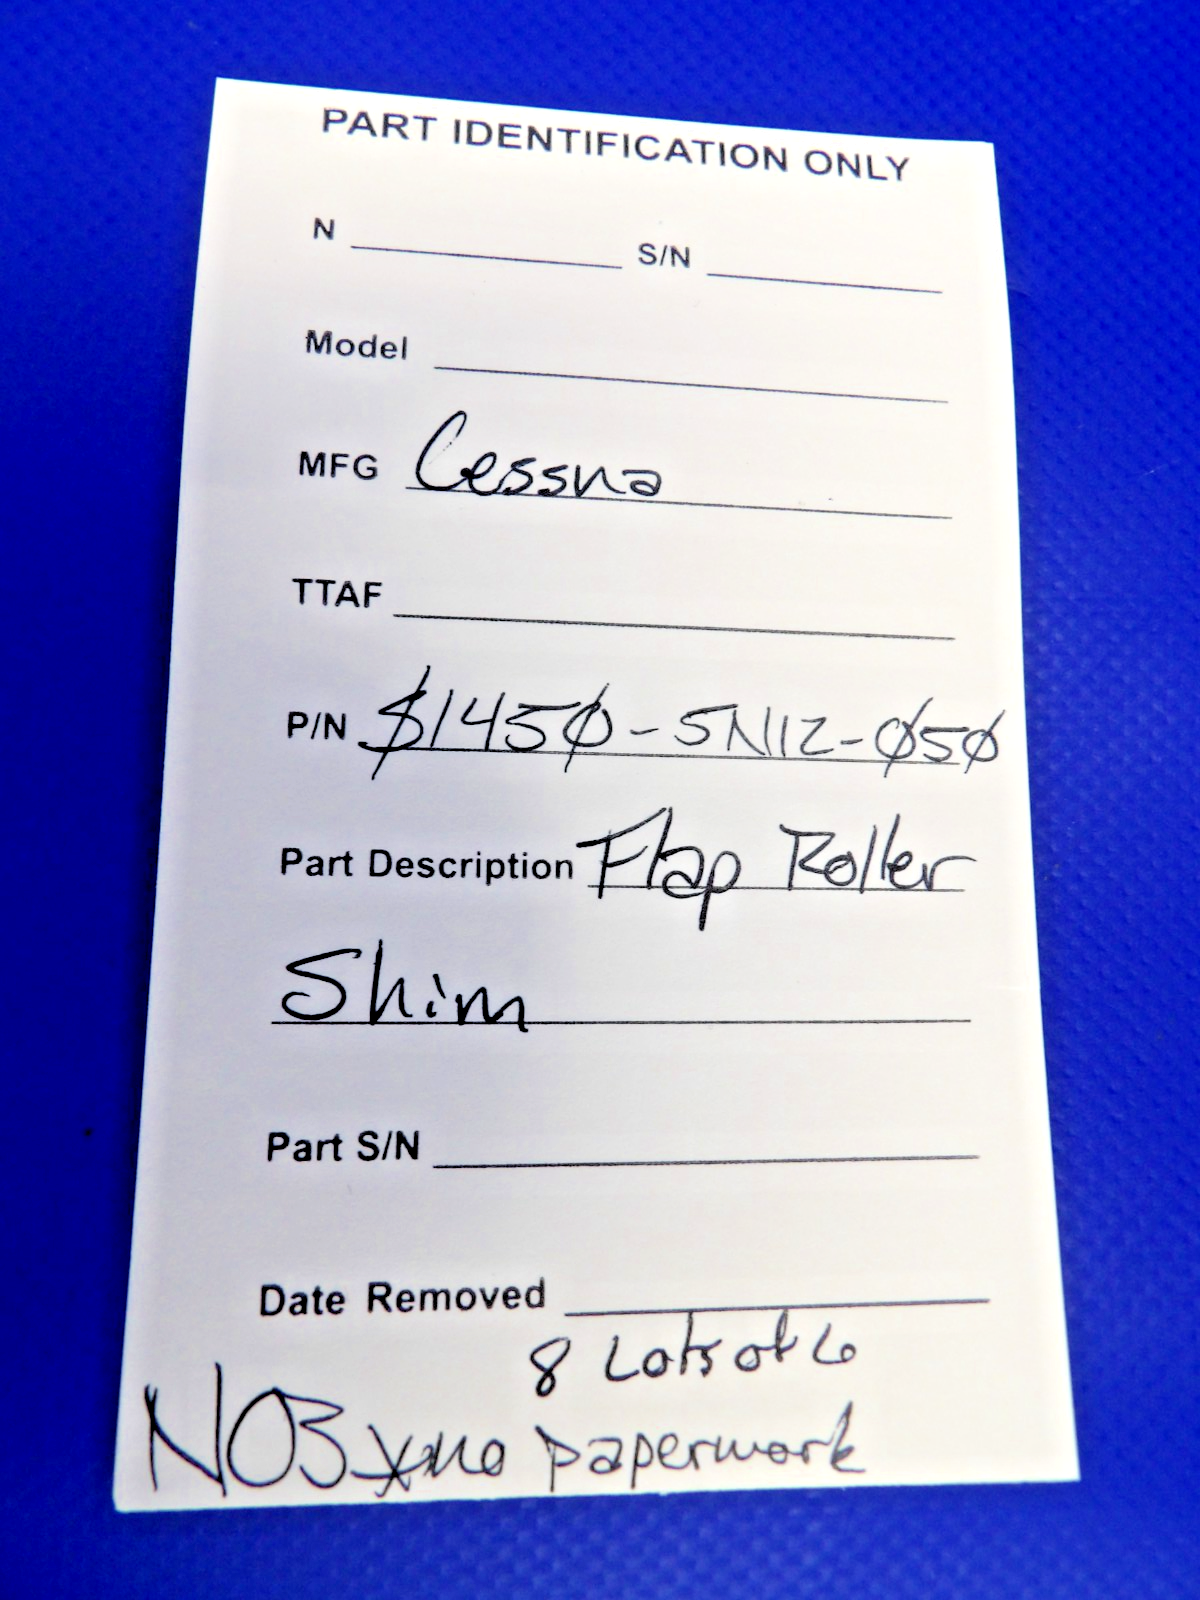 PART IDENTIFICATION ONLY
N S/N
Model
MFG Cessna
TTAF
P/N S1450-5N12-050
Part Description Flap Roller
Shim
Part S/N
Date Removed
8 Lots of 6
no paperwork